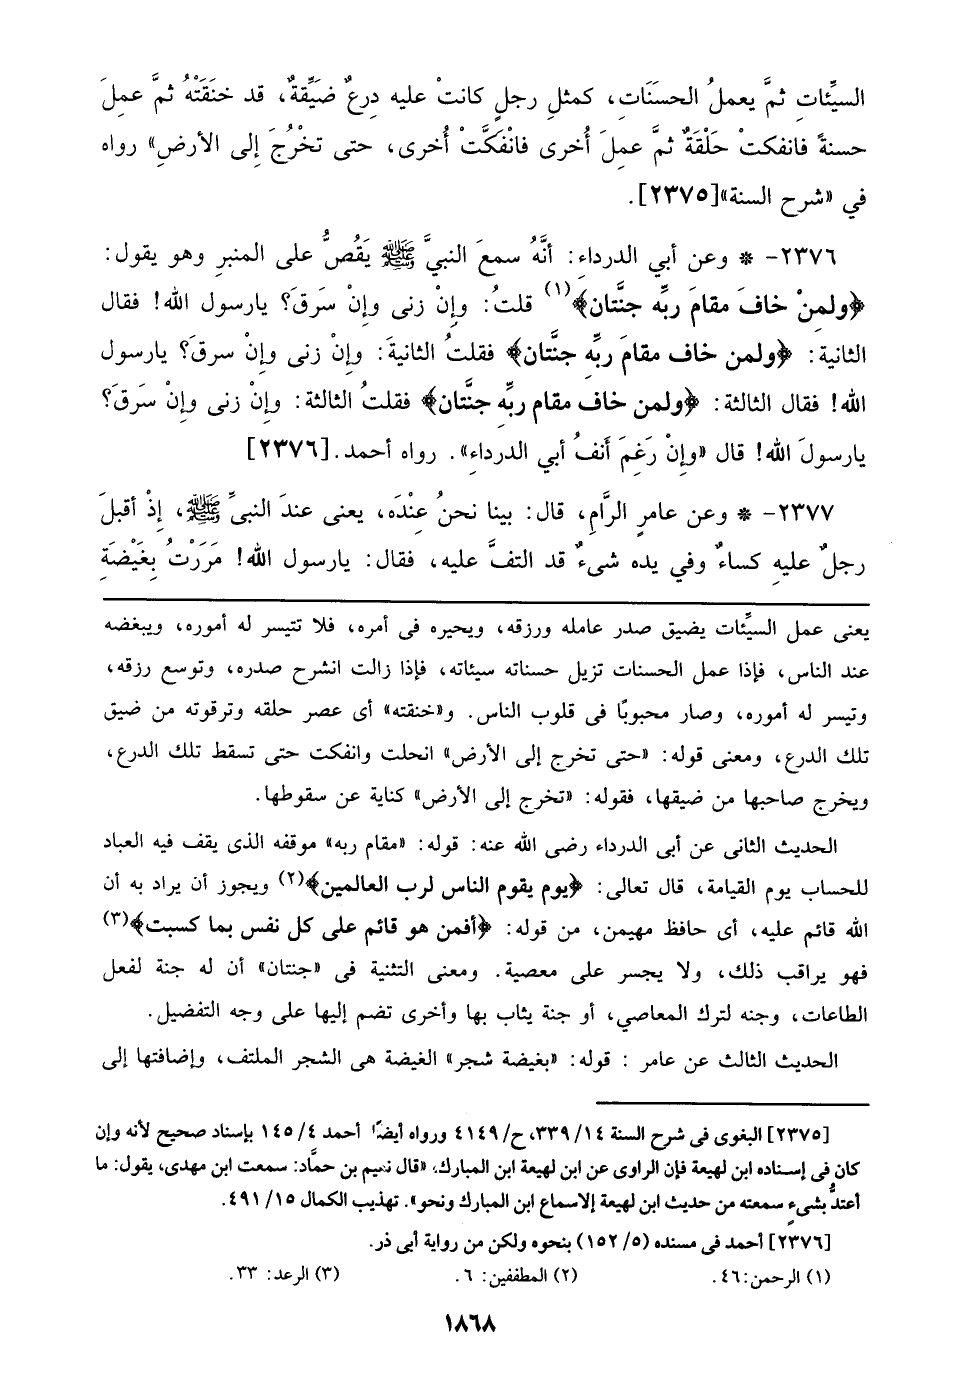 السيِّئاتِ ثمَّ يعملُ الحسَنَاتِ، كمثلِ رجلٍ كانتْ عليه دِرعٌ ضَيِّقةٌ، قد خنَقَتْهُ ثمَّ عمِلَ
حسنةً فانفكتْ حَلْقَةٌ ثمَّ عمِلَ أُخرى فانْفَكَّتْ أُخرى، حتى تخْرُجَ إلى الأرضِ» رواه
في «شرح السنة»[٢٣٧٥].
٢٣٧٦- * وعن أبي الدرداءِ: أنَّهُ سمعَ النبيَّ ﷺ يَقُصُّ على المنبرِ وهو يقول:
﴿ولمنْ خافَ مقامَ ربِّه جنَّتان﴾(١) قلتُ: وإنْ زنى وإنْ سَرقَ؟ يارسول الله! فقال
الثانية: ﴿ولمن خاف مقامَ ربِّهِ جنَّتان﴾ فقلتُ الثانيةَ: وإنْ زنى وإنْ سرقَ؟ يارسول
الله! فقال الثالثة: ﴿ولمن خاف مقام ربِّهِ جنَّتان﴾ فقلتُ الثالثة: وإنْ زنى وإنْ سَرقَ؟
يارسولَ الله! قال «وإنْ رَغِمَ أَنفُ أبي الدرداءِ». رواه أحمد.[٢٣٧٦]
٢٣٧٧- * وعن عامرٍ الرَّامِ، قال: بينا نحنُ عِنْدَه، يعنى عندَ النبىِّ ﷺ، إِذْ أقبلَ
رجلٌ عليهِ كساءٌ وفي يده شىءٌ قد التفَّ عليه، فقال: يارسول الله! مَرَرْتُ بِغَيْضَةِ
يعنى عمل السيِّئات يضيق صدر عامله ورزقه، ويحيره فى أمره، فلا تتيسر له أموره، ويبغضه
عند الناس، فإذا عمل الحسنات تزيل حسناته سيئاته، فإذا زالت انشرح صدره، وتوسع رزقه،
وتيسر له أموره، وصار محبوبًا فى قلوب الناس. و«خنقته» أى عصر حلقه وترقوته من ضيق
تلك الدرع، ومعنى قوله: «حتى تخرج إلى الأرض» انحلت وانفكت حتى تسقط تلك الدرع،
ويخرج صاحبها من ضيقها، فقوله: «تخرج إلى الأرض» كناية عن سقوطها.
الحديث الثانى عن أبى الدرداء رضى الله عنه: قوله: «مقام ربه» موقفه الذى يقف فيه العباد
للحساب يوم القيامة، قال تعالى: ﴿يوم يقوم الناس لرب العالمين﴾(٢) ويجوز أن يراد به أن
الله قائم عليه، أى حافظ مهيمن، من قوله: ﴿أفمن هو قائم على كل نفس بما كسبت﴾(٣)
فهو يراقب ذلك، ولا يجسر على معصية. ومعنى التثنية فى «جنتان» أن له جنة لفعل
الطاعات، وجنه لترك المعاصي، أو جنة يثاب بها وأخرى تضم إليها على وجه التفضيل.
الحديث الثالث عن عامر : قوله: «بغيضة شجر» الغيضة هى الشجر الملتف، وإضافتها إلى
[٢٣٧٥] البغوى فى شرح السنة ١٤/ ٣٣٩، ح/ ٤١٤٩ ورواه أيضًا أحمد ٤/ ١٤٥ بإسناد صحيح لأنه وإن
كان فى إسناده ابن لهيعة فإن الراوى عن ابن لهيعة ابن المبارك، «قال نعيم بن حمَّاد: سمعت ابن مهدى، يقول: ما
أعتدُّ بشىءٍ سمعته من حديث ابن لهيعة إلاسماع ابن المبارك ونحو». تهذيب الكمال ١٥/ ٤٩١.
[٢٣٧٦] أحمد فى مسنده (٥/ ١٥٢) بنحوه ولكن من رواية أبى ذر.
(١) الرحمن:٤٦. (٢) المطففين: ٦. (٣) الرعد: ٣٣.
١٨٦٨